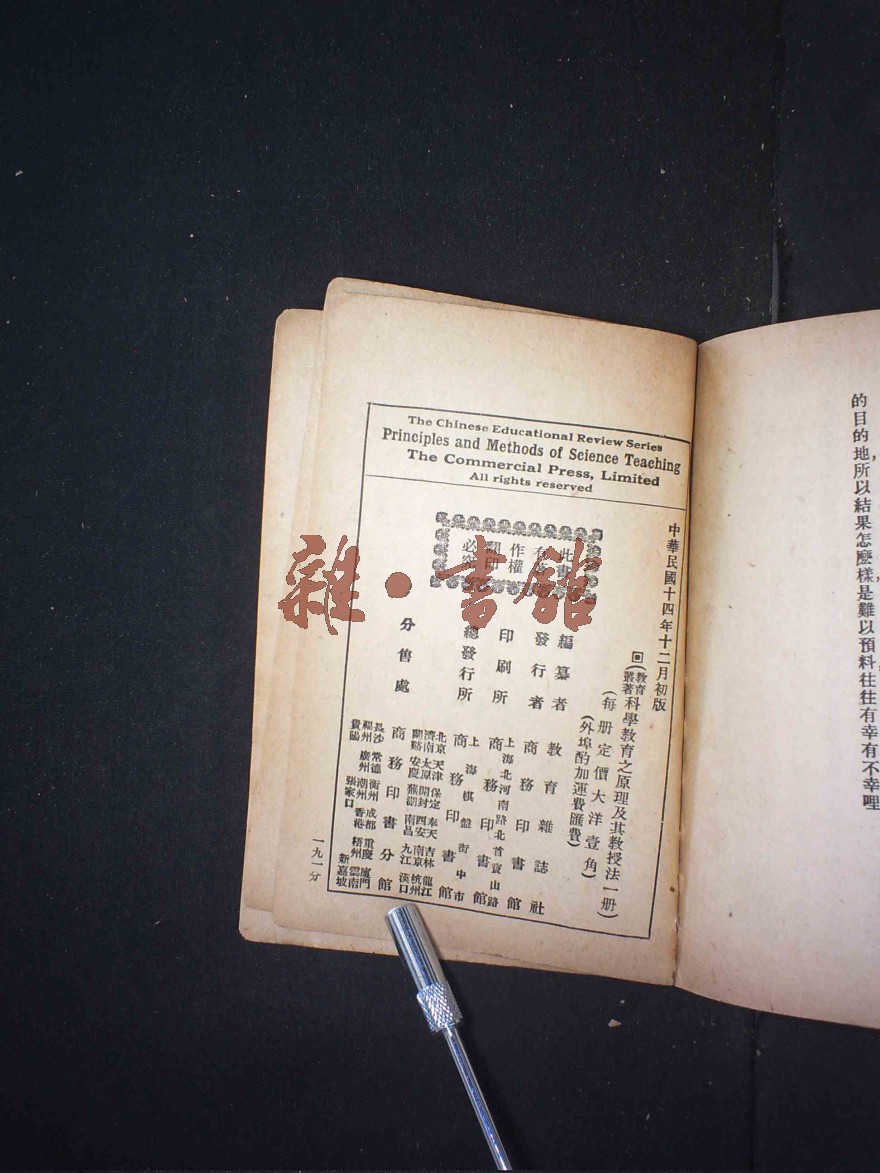 的目的地，所以結果怎麽樣，是難以預料，往往有幸有不幸哩
The Chinese Educational Review Series
Principles and Methods of Science Teaching
The Commercial Press, Limited
All rights reserved
中華民國十四年十二月初版
(教育叢著)科學教育之原理及其教授法一册)
(每册定價大洋壹角)
(外埠酌加運費匯費)
編纂者 教育雜誌社
發行者 商務印書館
印刷所 上海北河南路北首寶山路 商務印書館
總發行所 上海棋盤街中市 商務印書館
分售處 商務印書分館
北京 天津 保定 奉天 吉林 龍江
濟南 太原 開封 西安 南京 杭州
安慶 蕪湖 南昌 九江 漢口
長沙 常德 衡州 成都 重慶 廈門
福州 廣州 潮州 香港 梧州 雲南
貴陽 張家口 新嘉坡
此書有
作權
翻印
必究
一九一分
雜·書館